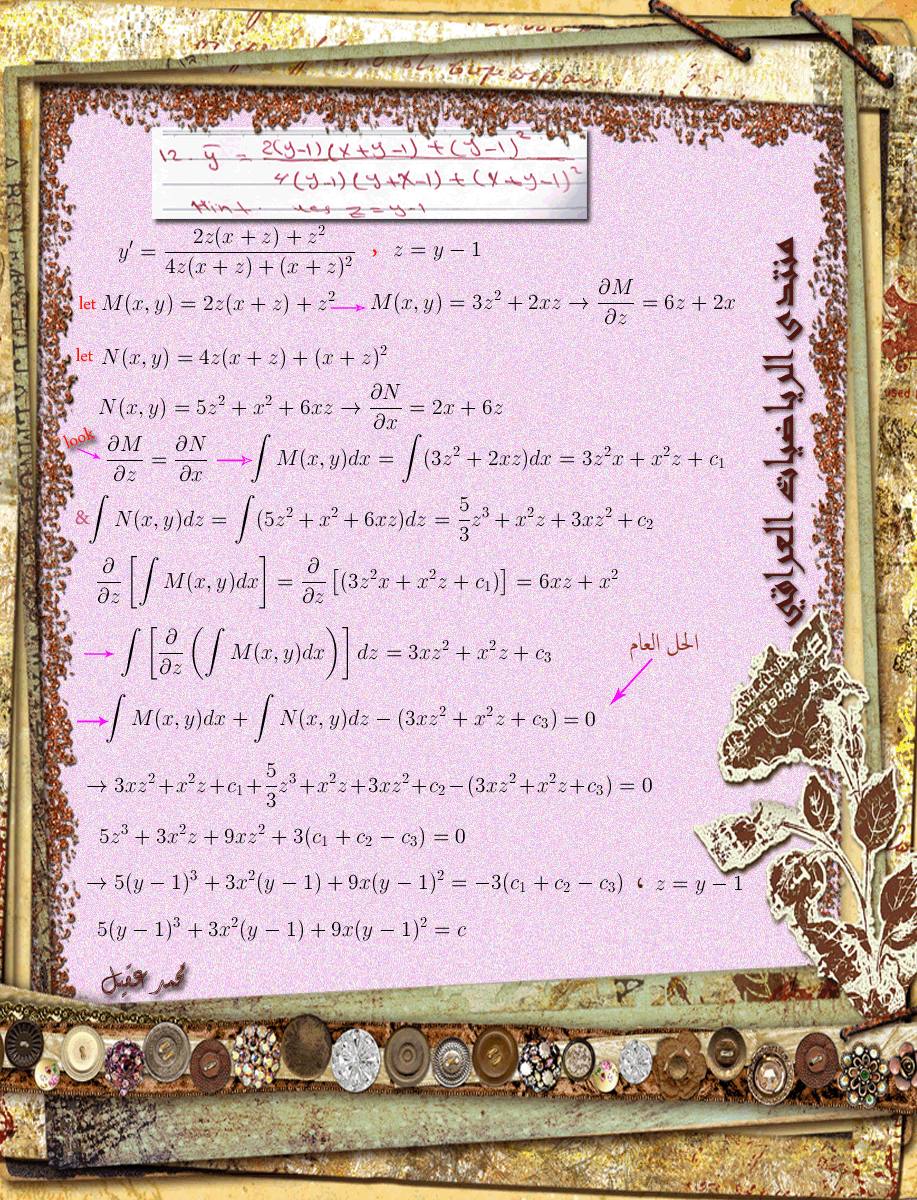 12. y̅ = 2(y-1)(x+y-1)+(y-1)² / 4(y-1)(y+x-1)+(x+y-1)²
Hint. z=y-1
y′ = 2z(x + z) + z² / 4z(x + z) + (x + z)² ، z = y − 1
let M(x, y) = 2z(x + z) + z² → M(x, y) = 3z² + 2xz → ∂M/∂z = 6z + 2x
let N(x, y) = 4z(x + z) + (x + z)²
N(x, y) = 5z² + x² + 6xz → ∂N/∂x = 2x + 6z
look → ∂M/∂z = ∂N/∂x → ∫ M(x, y)dx = ∫ (3z² + 2xz)dx = 3z²x + x²z + c₁
& ∫ N(x, y)dz = ∫ (5z² + x² + 6xz)dz = 5/3 z³ + x²z + 3xz² + c₂
∂/∂z [∫ M(x, y)dx] = ∂/∂z [(3z²x + x²z + c₁)] = 6xz + x²
→ ∫ [∂/∂z (∫ M(x, y)dx)] dz = 3xz² + x²z + c₃
الحل العام
→ ∫ M(x, y)dx + ∫ N(x, y)dz − (3xz² + x²z + c₃) = 0
→ 3xz²+x²z+c₁+5/3 z³+x²z+3xz²+c₂−(3xz²+x²z+c₃) = 0
5z³ + 3x²z + 9xz² + 3(c₁ + c₂ − c₃) = 0
→ 5(y − 1)³ + 3x²(y − 1) + 9x(y − 1)² = −3(c₁ + c₂ − c₃) ، z = y − 1
5(y − 1)³ + 3x²(y − 1) + 9x(y − 1)² = c
محمد عقيل
منتدى الرياضيات العراقي